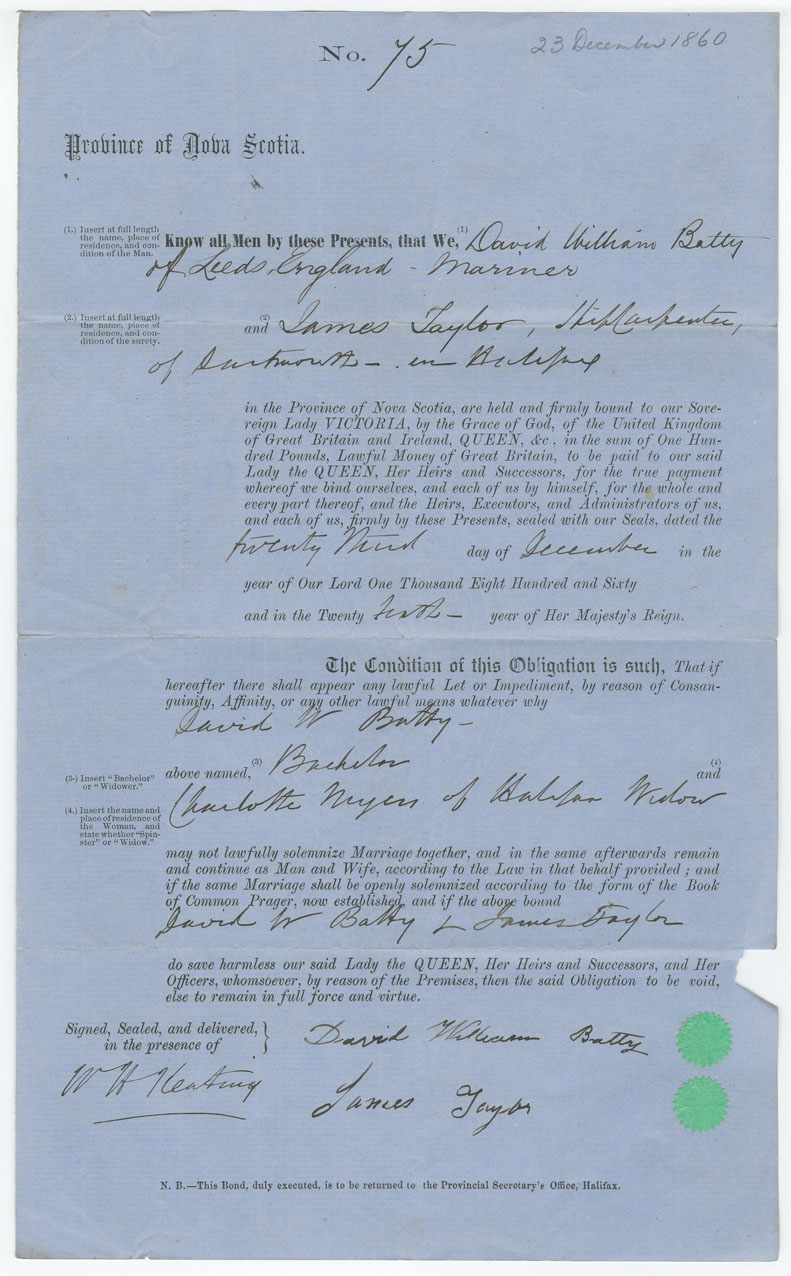 No. 75
23 December 1860
Province of Nova Scotia.
(1.) Insert at full length
the name, place of
residence, and con-
dition of the Man.
Know all Men by these Presents, that We, (1) David William Batty
of Leeds, England - Mariner
(2.) Insert at full length
the name, place of
residence, and con-
dition of the surety.
(2)
and James Taylor, Ship Carpenter,
of Dartmouth - in Halifax
in the Province of Nova Scotia, are held and firmly bound to our Sove-
reign Lady VICTORIA, by the Grace of God, of the United Kingdom
of Great Britain and Ireland, QUEEN, &c., in the sum of One Hun-
dred Pounds, Lawful Money of Great Britain, to be paid to our said
Lady the QUEEN, Her Heirs and Successors, for the true payment
whereof we bind ourselves, and each of us by himself, for the whole and
every part thereof, and the Heirs, Executors, and Administrators of us,
and each of us, firmly by these Presents, sealed with our Seals, dated the
twenty third day of December in the
year of Our Lord One Thousand Eight Hundred and Sixty
and in the Twenty fourth - year of Her Majesty's Reign.
The Condition of this Obligation is such, That if
hereafter there shall appear any lawful Let or Impediment, by reason of Consan-
guinity, Affinity, or any other lawful means whatever why
David W Batty -
(3.) Insert "Bachelor"
or "Widower."
above named, (3) Bachelor (4) and
(4.) Insert the name and
place of residence of
the Woman, and
state whether "Spin-
ster" or "Widow."
Charlotte Myers of Halifax Widow
may not lawfully solemnize Marriage together, and in the same afterwards remain
and continue as Man and Wife, according to the Law in that behalf provided; and
if the same Marriage shall be openly solemnized according to the form of the Book
of Common Prager, now established, and if the above bound
David W Batty & James Taylor
do save harmless our said Lady the QUEEN, Her Heirs and Successors, and Her
Officers, whomsoever, by reason of the Premises, then the said Obligation to be void,
else to remain in full force and virtue.
Signed, Sealed, and delivered,
in the presence of
David William Batty
W H Keating
James Taylor
N. B.—This Bond, duly executed, is to be returned to the Provincial Secretary's Office, Halifax.